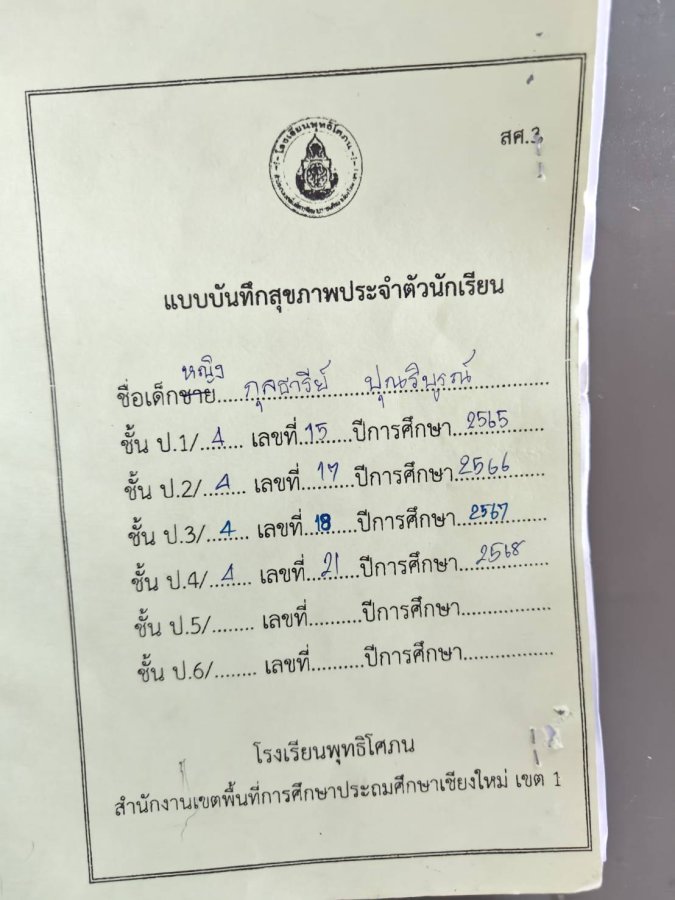 โรงเรียนพุทธิโศภน
สศ.3
แบบบันทึกสุขภาพประจำตัวนักเรียน
หญิง
ชื่อเด็กชาย.....กุลธารีย์ ปุณวิบูรณ์
ชั้น ป.1/..4.... เลขที่.15.....ปีการศึกษา..2565
ชั้น ป.2/..4.... เลขที่..17....ปีการศึกษา.2566
ชั้น ป.3/..4.... เลขที่..18....ปีการศึกษา..2567
ชั้น ป.4/..4.... เลขที่...21...ปีการศึกษา...2568
ชั้น ป.5/........ เลขที่..........ปีการศึกษา................
ชั้น ป.6/........ เลขที่..........ปีการศึกษา................
โรงเรียนพุทธิโศภน
สำนักงานเขตพื้นที่การศึกษาประถมศึกษาเชียงใหม่ เขต 1